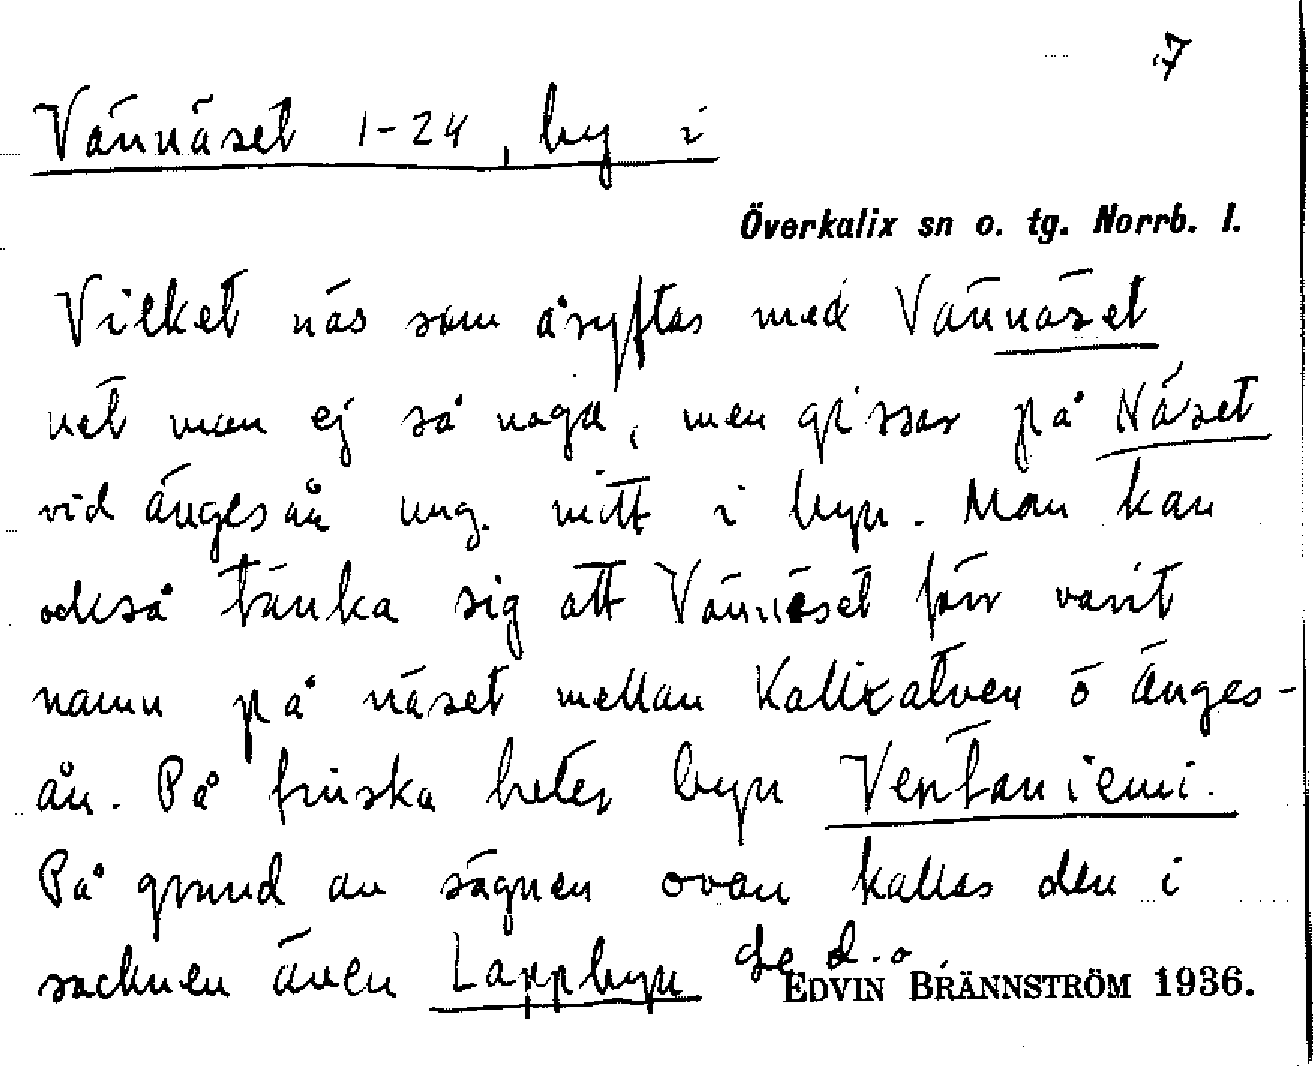 7
Vännäset 1-24, by i
Överkalix sn o. tg. Norrb. l.
Vilket näs som åsyftas med Vännäset
vet man ej så noga, men gissar på Näset
vid ängesån ung. mitt i byn. Man kan
också tänka sig att Vännäset förr varit
namn på näset mellan Kalixälven o Änges-
ån. På finska heter byn Ventaniemi.
På grund av sägnen ovan kallas den i
socknen även Lappbyn Se d.o
EDVIN BRÄNNSTRÖM 1936.